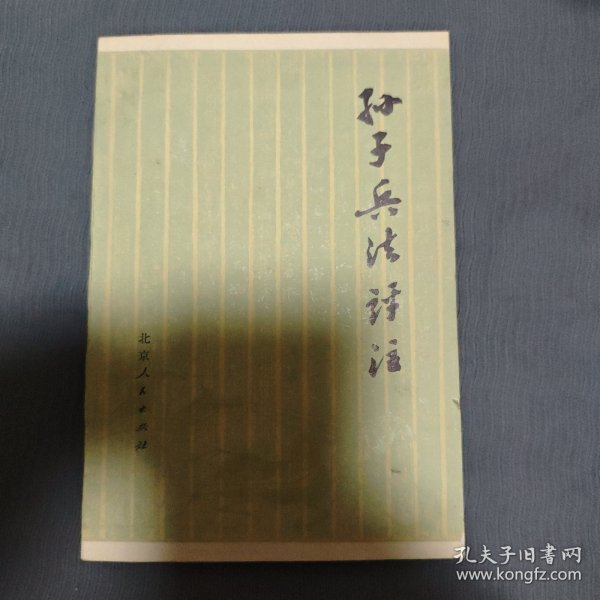 孙子兵法评注
北京人民出版社
孔夫子旧书网
www.kongfz.com